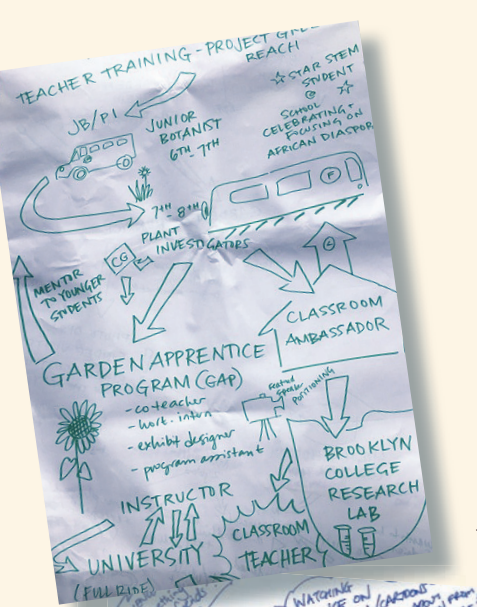 TEACHER TRAINING - PROJECT
REACH
☆ STAR STEM
STUDENT
@ ☆
SCHOOL
CELEBRATING +
FOCUSING ON
AFRICAN DIASPOR
JB/PI
JUNIOR
BOTANIST
6TH - 7TH
7TH - 8TH
PLANT
INVESTIGATORS
F
CG
MENTOR
TO YOUNGER
STUDENTS
CLASSROOM
AMBASSADOR
GARDEN APPRENTICE
PROGRAM (GAP)
- coteacher
- hort. intern
- exhibit designer
- program assistant
speaker
POSITIONING
BROOKLYN
COLLEGE
RESEARCH
LAB
INSTRUCTOR
CLASSROOM
TEACHER
UNIVERSITY
(FULL RIDE)
WATCHING
ON CARTOONS
FROM